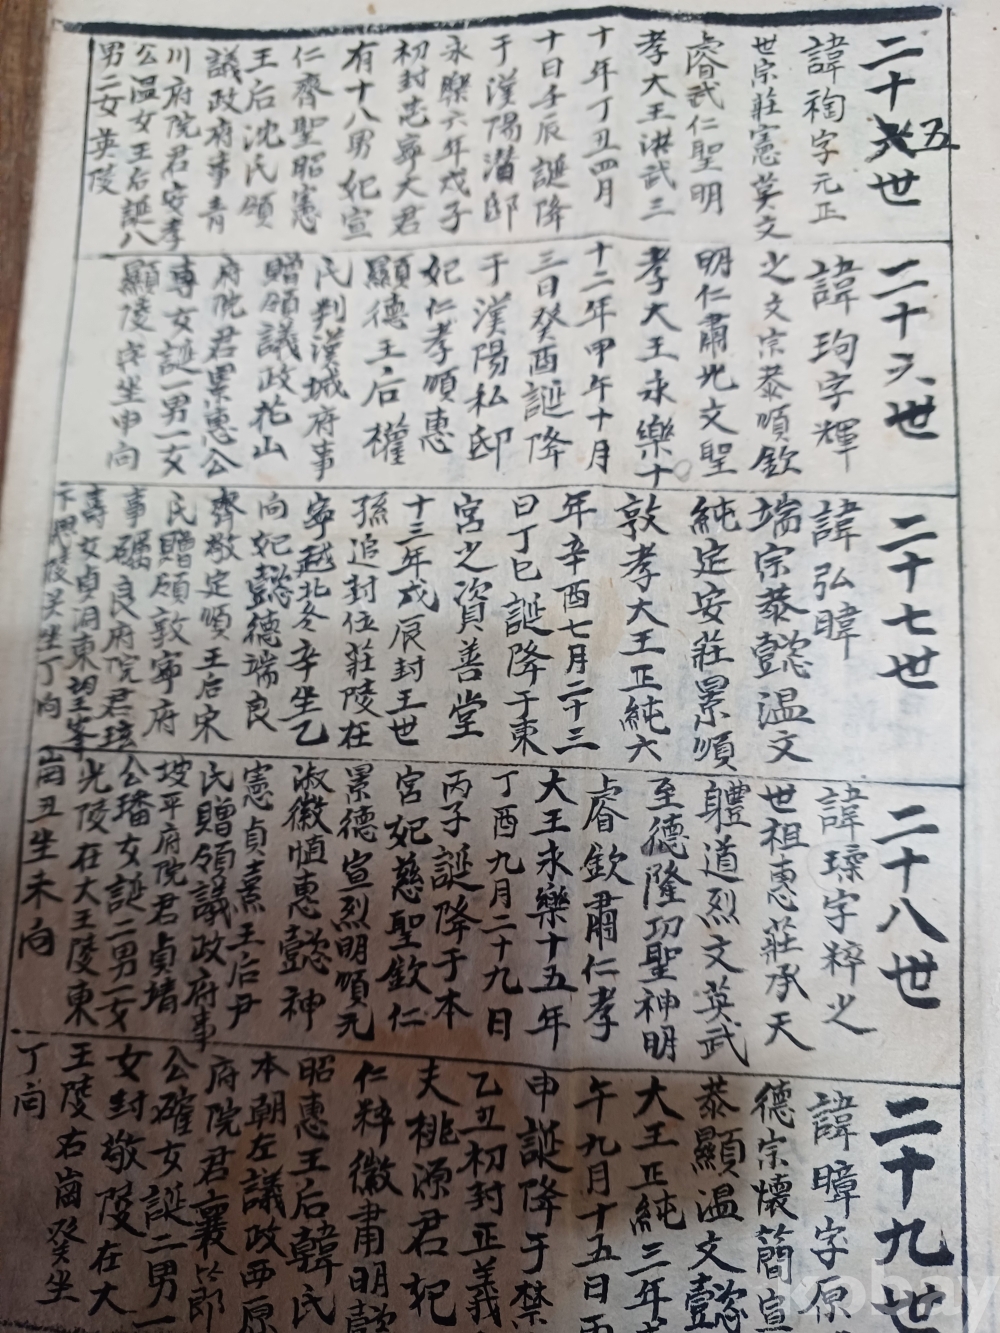 二十六五世
諱祹字元正
世宗莊憲英文
睿武仁聖明
孝大王洪武三
十年丁丑四月
十日壬辰誕降
于漢陽潛邸
永樂六年戊子
初封忠寧大君
有十八男妃宣
仁齊聖昭憲
王后沈氏領
議政府事青
川府院君安孝
公温女王后誕八
男二女英陵
二十六世
諱珦字輝
之文宗恭順欽
明仁肅光文聖
孝大王永樂十
十二年甲午十月
三日癸酉誕降
于漢陽私邸
妃仁孝順惠
顯德王后權
氏判漢城府事
贈領議政花山
府院君景惠公
專女誕一男一女
顯陵寅坐申向
二十七世
諱弘暐
端宗恭懿温文
純定安莊景順
敦孝大王正純六
年辛酉七月二十三
日丁巳誕降于東
宮之資善堂
十三年戊辰封王世
孫追封位莊陵在
寧越北冬辛坐乙
向妃懿德端良
齊敬定順王后宋
氏贈領敦寧府
事礪良府院君玹
壽女貞洞東望峯
下思陵癸坐丁向
二十八世
諱瑈字粹之
世祖惠莊承天
體道烈文英武
至德隆功聖神明
睿欽肅仁孝
大王永樂十五年
丁酉九月二十九日
丙子誕降于本
宮妃慈聖欽仁
景德宣烈明順元
淑徽慎惠懿神
憲貞熹王后尹
氏贈領議政府事
坡平府院君貞靖
公璠女誕二男一女
光陵在大王陵東
崗丑坐未向
二十九世
諱暲字原
德宗懷簡宣
恭顯温文懿
大王正純三年戊
午九月十五日丙
申誕降于禁
乙丑初封正義
夫桃源君妃
仁粹徽肅明懿
昭惠王后韓氏
本朝左議政西原
府院君襄節
公確女誕二男一
女封敬陵在大
王陵右崗癸坐
丁向
kobay